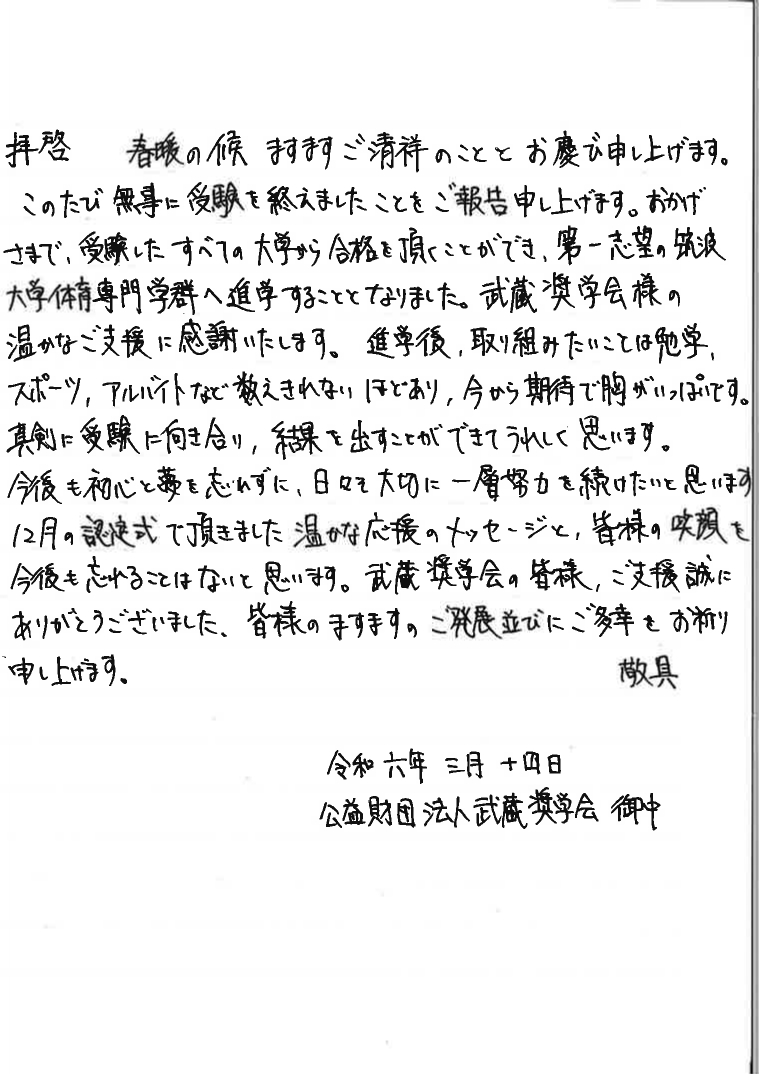 拝啓　春暖の候 ますますご清祥のこととお慶び申し上げます。
このたび無事に受験を終えましたことをご報告申し上げます。おかげ
さまで、受験したすべての大学から合格を頂くことができ、第一志望の筑波
大学体育専門学群へ進学することとなりました。武蔵奨学会様の
温かなご支援に感謝いたします。進学後、取り組みたいことは勉学、
スポーツ、アルバイトなど数えきれないほどあり、今から期待で胸がいっぱいです。
真剣に受験に向き合い、結果を出すことができてうれしく思います。
今後も初心と夢を忘れずに、日々を大切に一層努力を続けたいと思います
12月の認定式で頂きました温かな応援のメッセージと、皆様の笑顔を
今後も忘れることはないと思います。武蔵奨学会の皆様、ご支援誠に
ありがとうございました、皆様のますますのご発展並びにご多幸をお祈り
申し上げます。　敬具
令和六年 三月 十四日
公益財団法人武蔵奨学会 御中